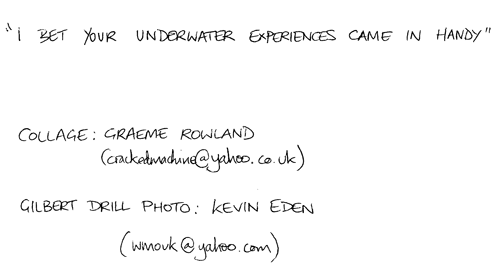 "i BET YOUR UNDERWATER EXPERIENCES CAME IN HANDY"
COLLAGE: GRAEME ROWLAND
(crackedmachine@yahoo.co.uk)
GILBERT DRILL PHOTO: KEVIN EDEN
(wmouk@yahoo.com)